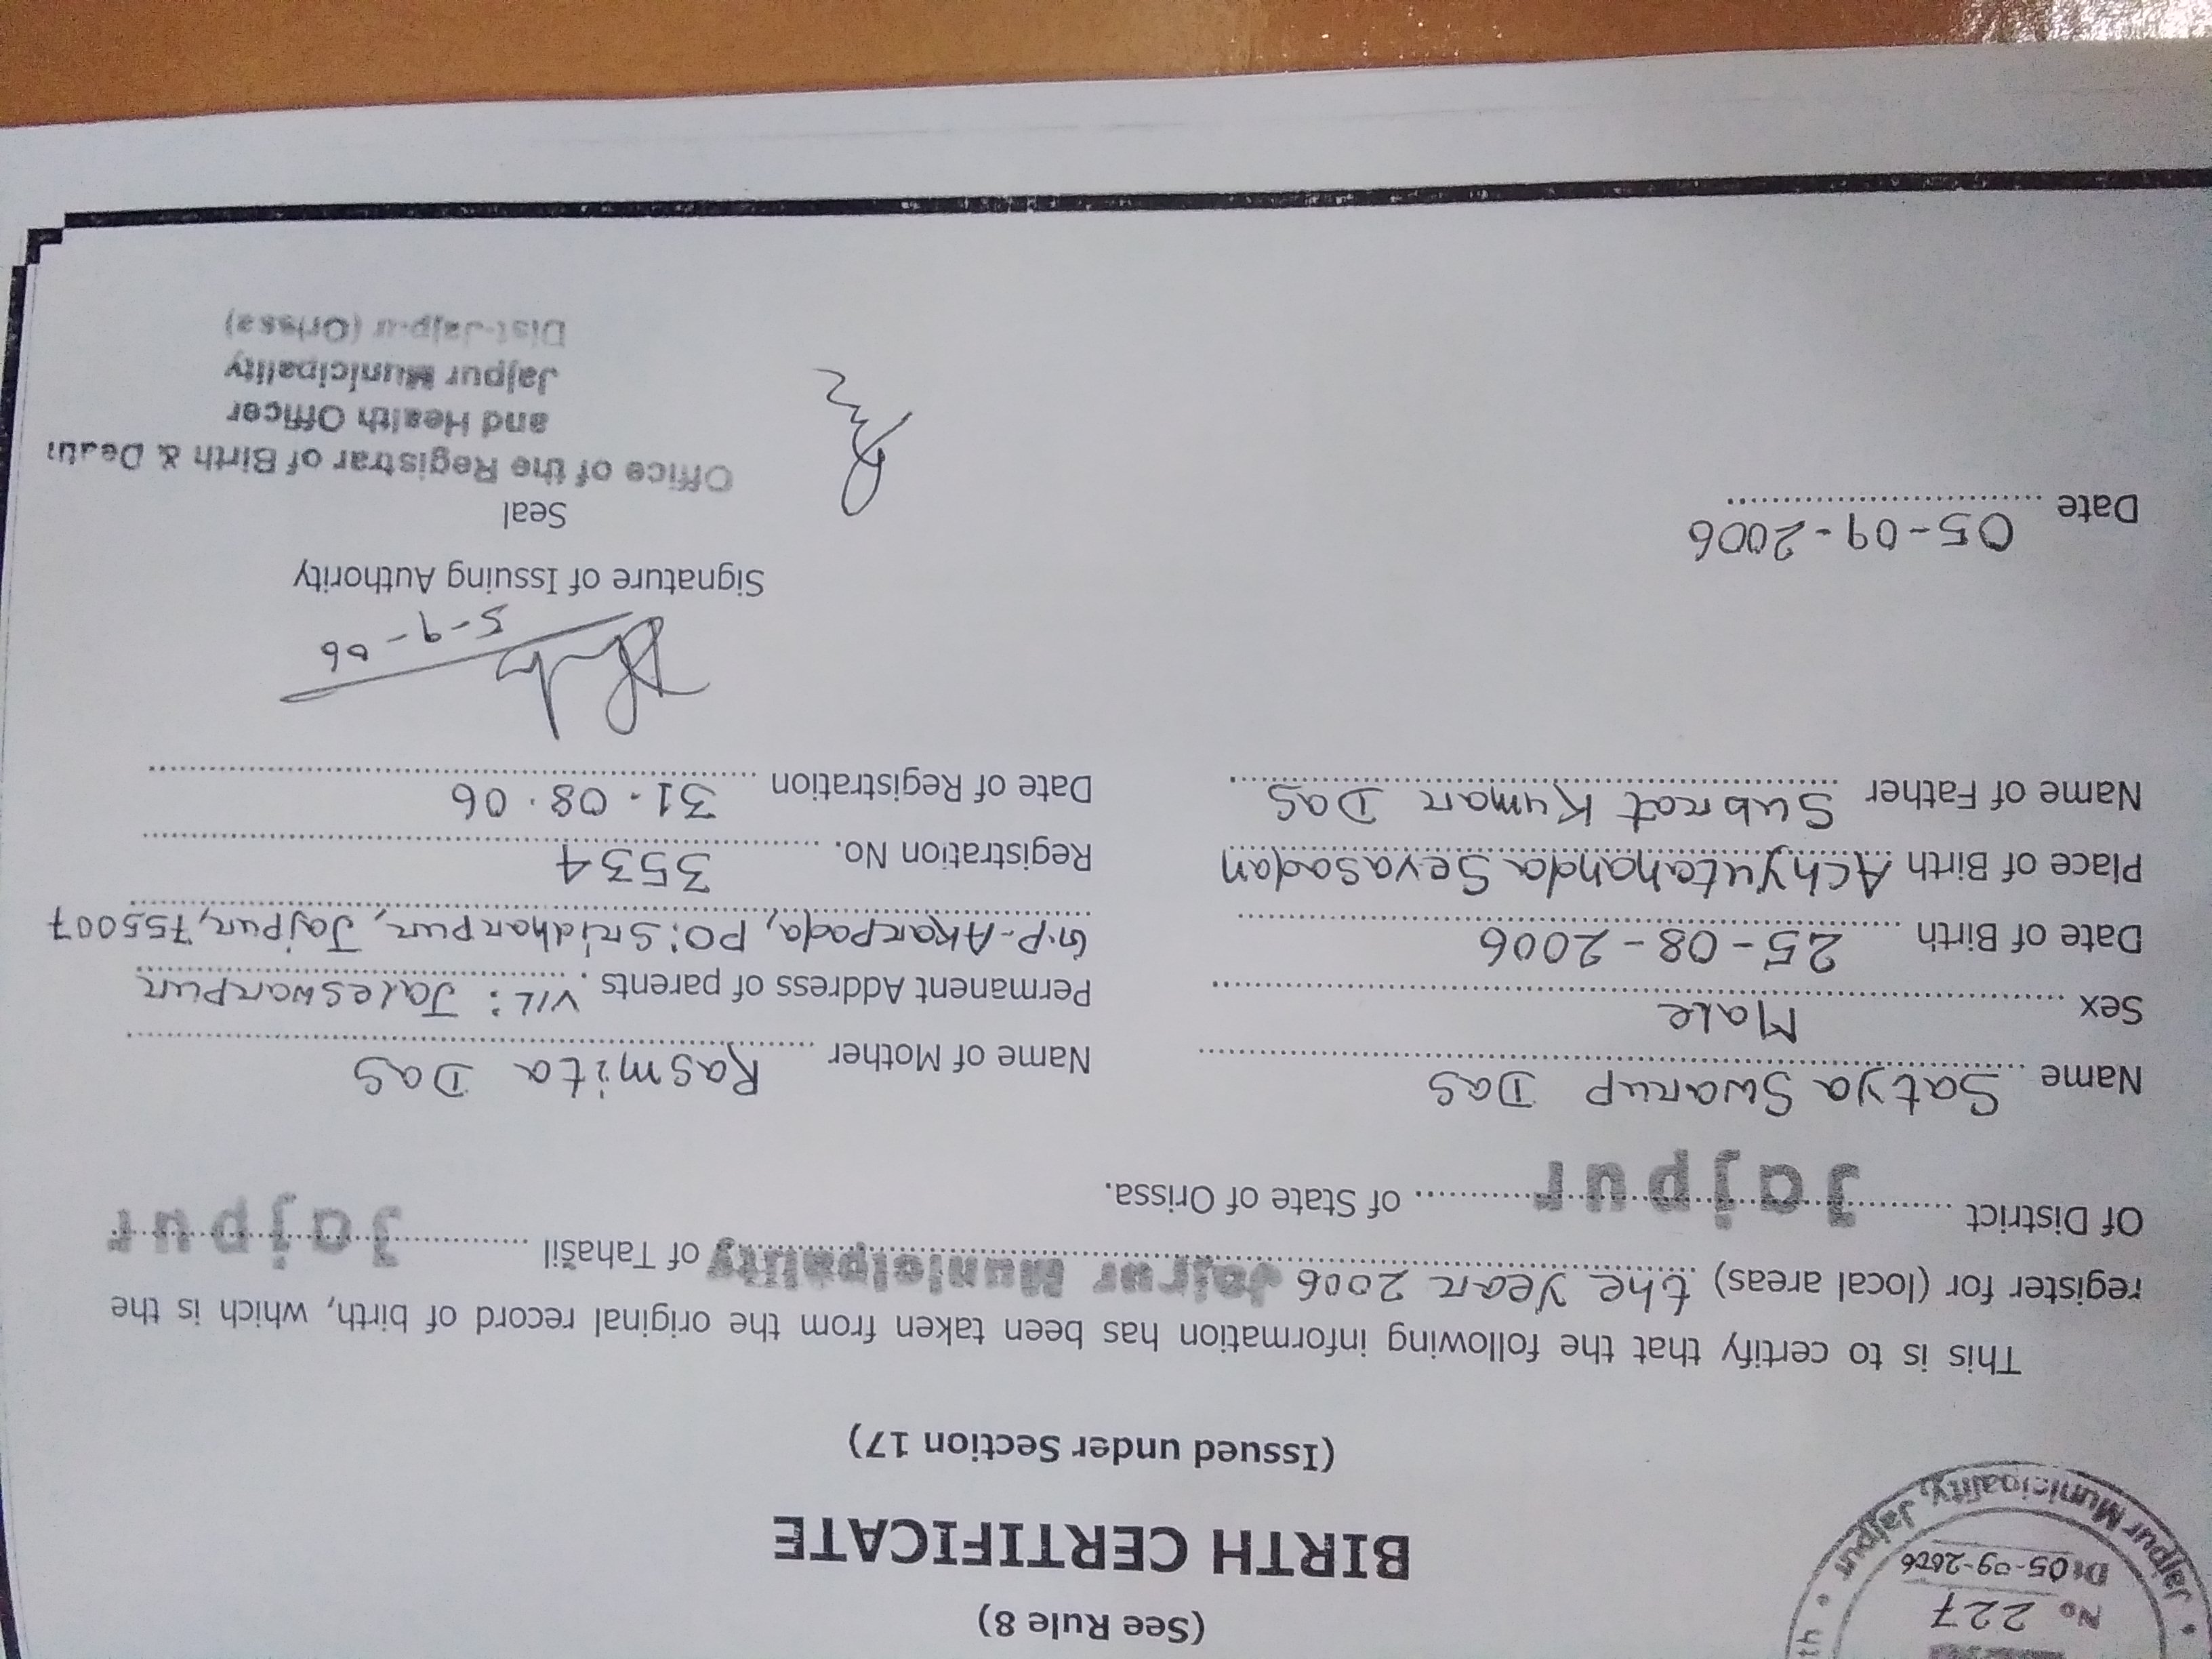 (See Rule 8)
BIRTH CERTIFICATE
(Issued under Section 17)
No 227
Dt 05-09-2006
Jajpur Municipality, Jajpur
This is to certify that the following information has been taken from the original record of birth, which is the
register for (local areas) the year 2006 Jajpur Municipality of Tahasil Jajpur
Of District Jajpur of State of Orissa.
Name Satya Swarup Das
Sex Male
Date of Birth 25-08-2006
Place of Birth Achyutananda Sevasadan
Name of Father Subrat Kumar Das
Name of Mother Rasmita Das
Permanent Address of parents. Vil: Jaleswarpur
G.P-Akarpada, PO: Sridharpur, Jajpur, 755007
Registration No. 3534
Date of Registration 31.08.06
5-9-06
Signature of Issuing Authority
Seal
Date 05-09-2006
Office of the Registrar of Birth & Death
and Health Officer
Jajpur Municipality
Dist-Jajpur (Orissa)